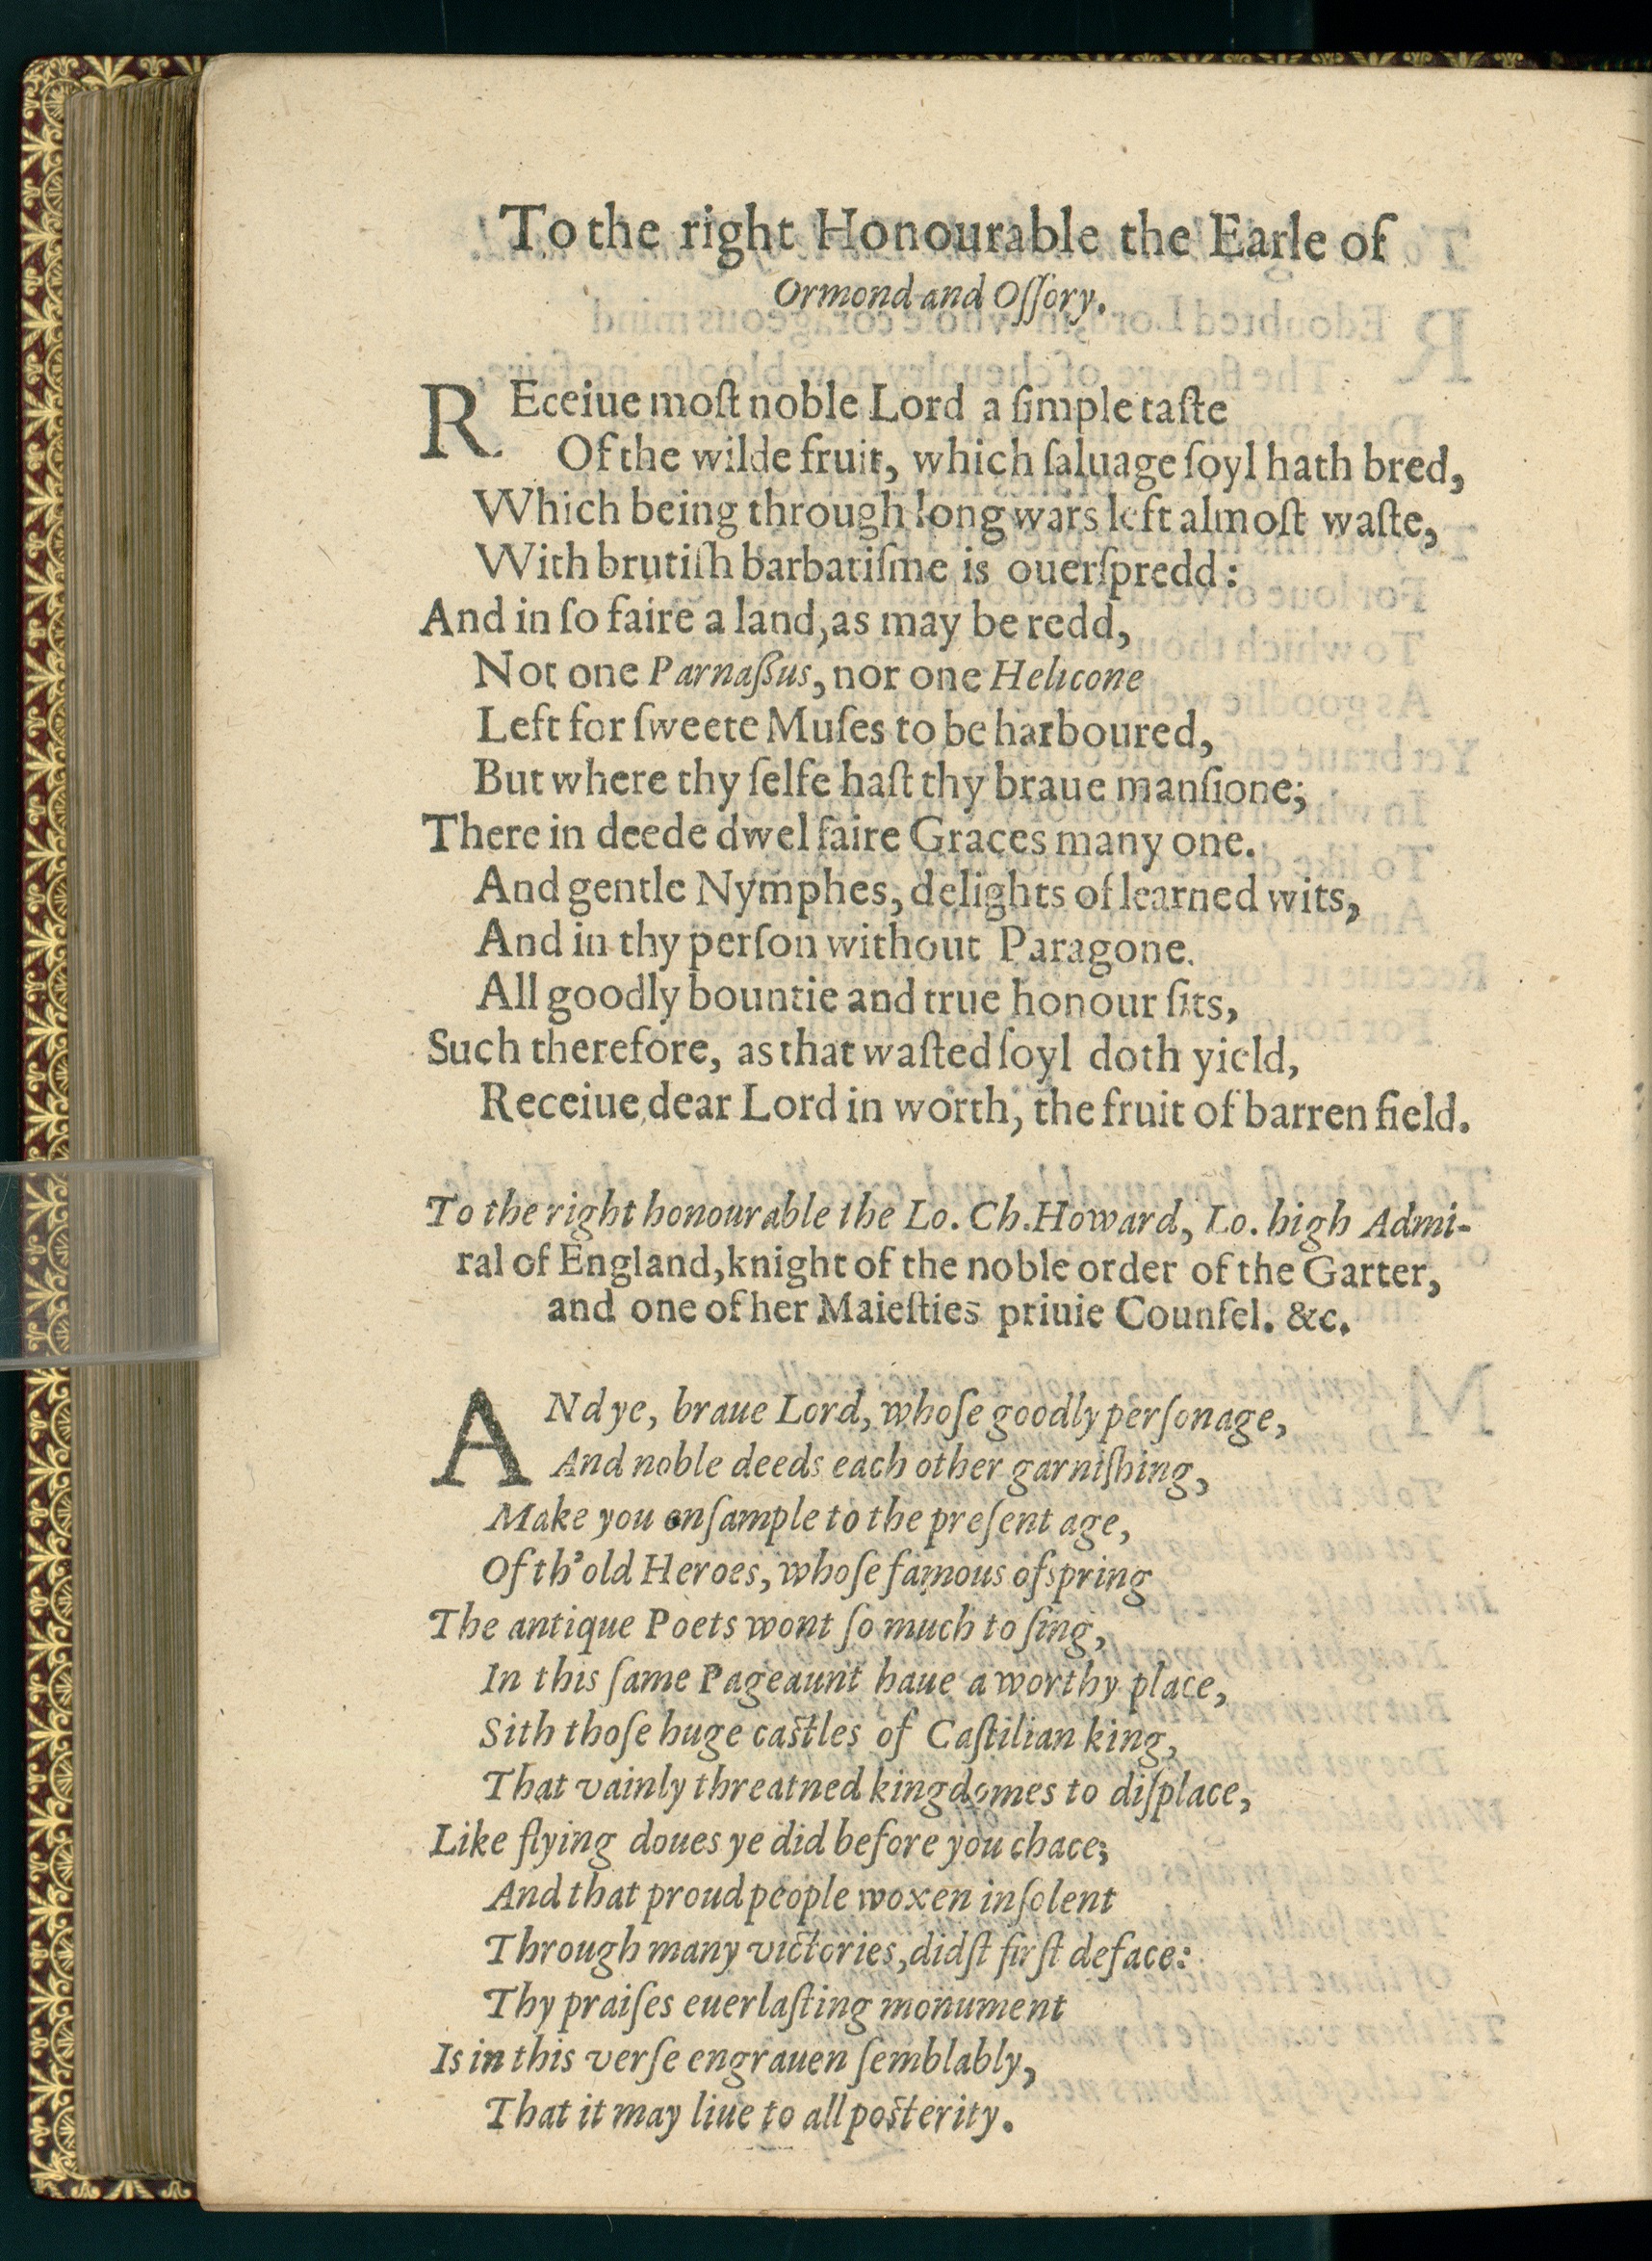 To the right Honourable the Earle of
Ormond and Oſſory.
REceiue moſt noble Lord a ſimple taſte
Of the wilde fruit, which ſaluage ſoyl hath bred,
Which being through long wars left almoſt waſte,
With brutiſh barbariſme is ouerſpredd:
And in ſo faire a land, as may be redd,
Not one Parnaßus, nor one Helicone
Left for ſweete Muſes to be harboured,
But where thy ſelfe haſt thy braue manſione;
There in deede dwel faire Graces many one.
And gentle Nymphes, delights of learned wits,
And in thy perſon without Paragone.
All goodly bountie and true honour ſits,
Such therefore, as that waſted ſoyl doth yield,
Receiue dear Lord in worth, the fruit of barren field.
To the right honourable the Lo. Ch. Howard, Lo. high Admi-
ral of England, knight of the noble order of the Garter,
and one of her Maieſties priuie Counſel. &c.
ANd ye, braue Lord, whoſe goodly perſonage,
And noble deeds each other garniſhing,
Make you enſample to the preſent age,
Of th'old Heroes, whoſe famous ofspring
The antique Poets wont ſo much to ſing,
In this ſame Pageaunt haue a worthy place,
Sith thoſe huge caſtles of Caſtilian king,
That vainly threatned kingdomes to diſplace,
Like flying doues ye did before you chace;
And that proud people woxen inſolent
Through many victories, didſt firſt deface:
Thy praiſes euerlaſting monument
Is in this verſe engrauen ſemblably,
That it may liue to all poſterity.